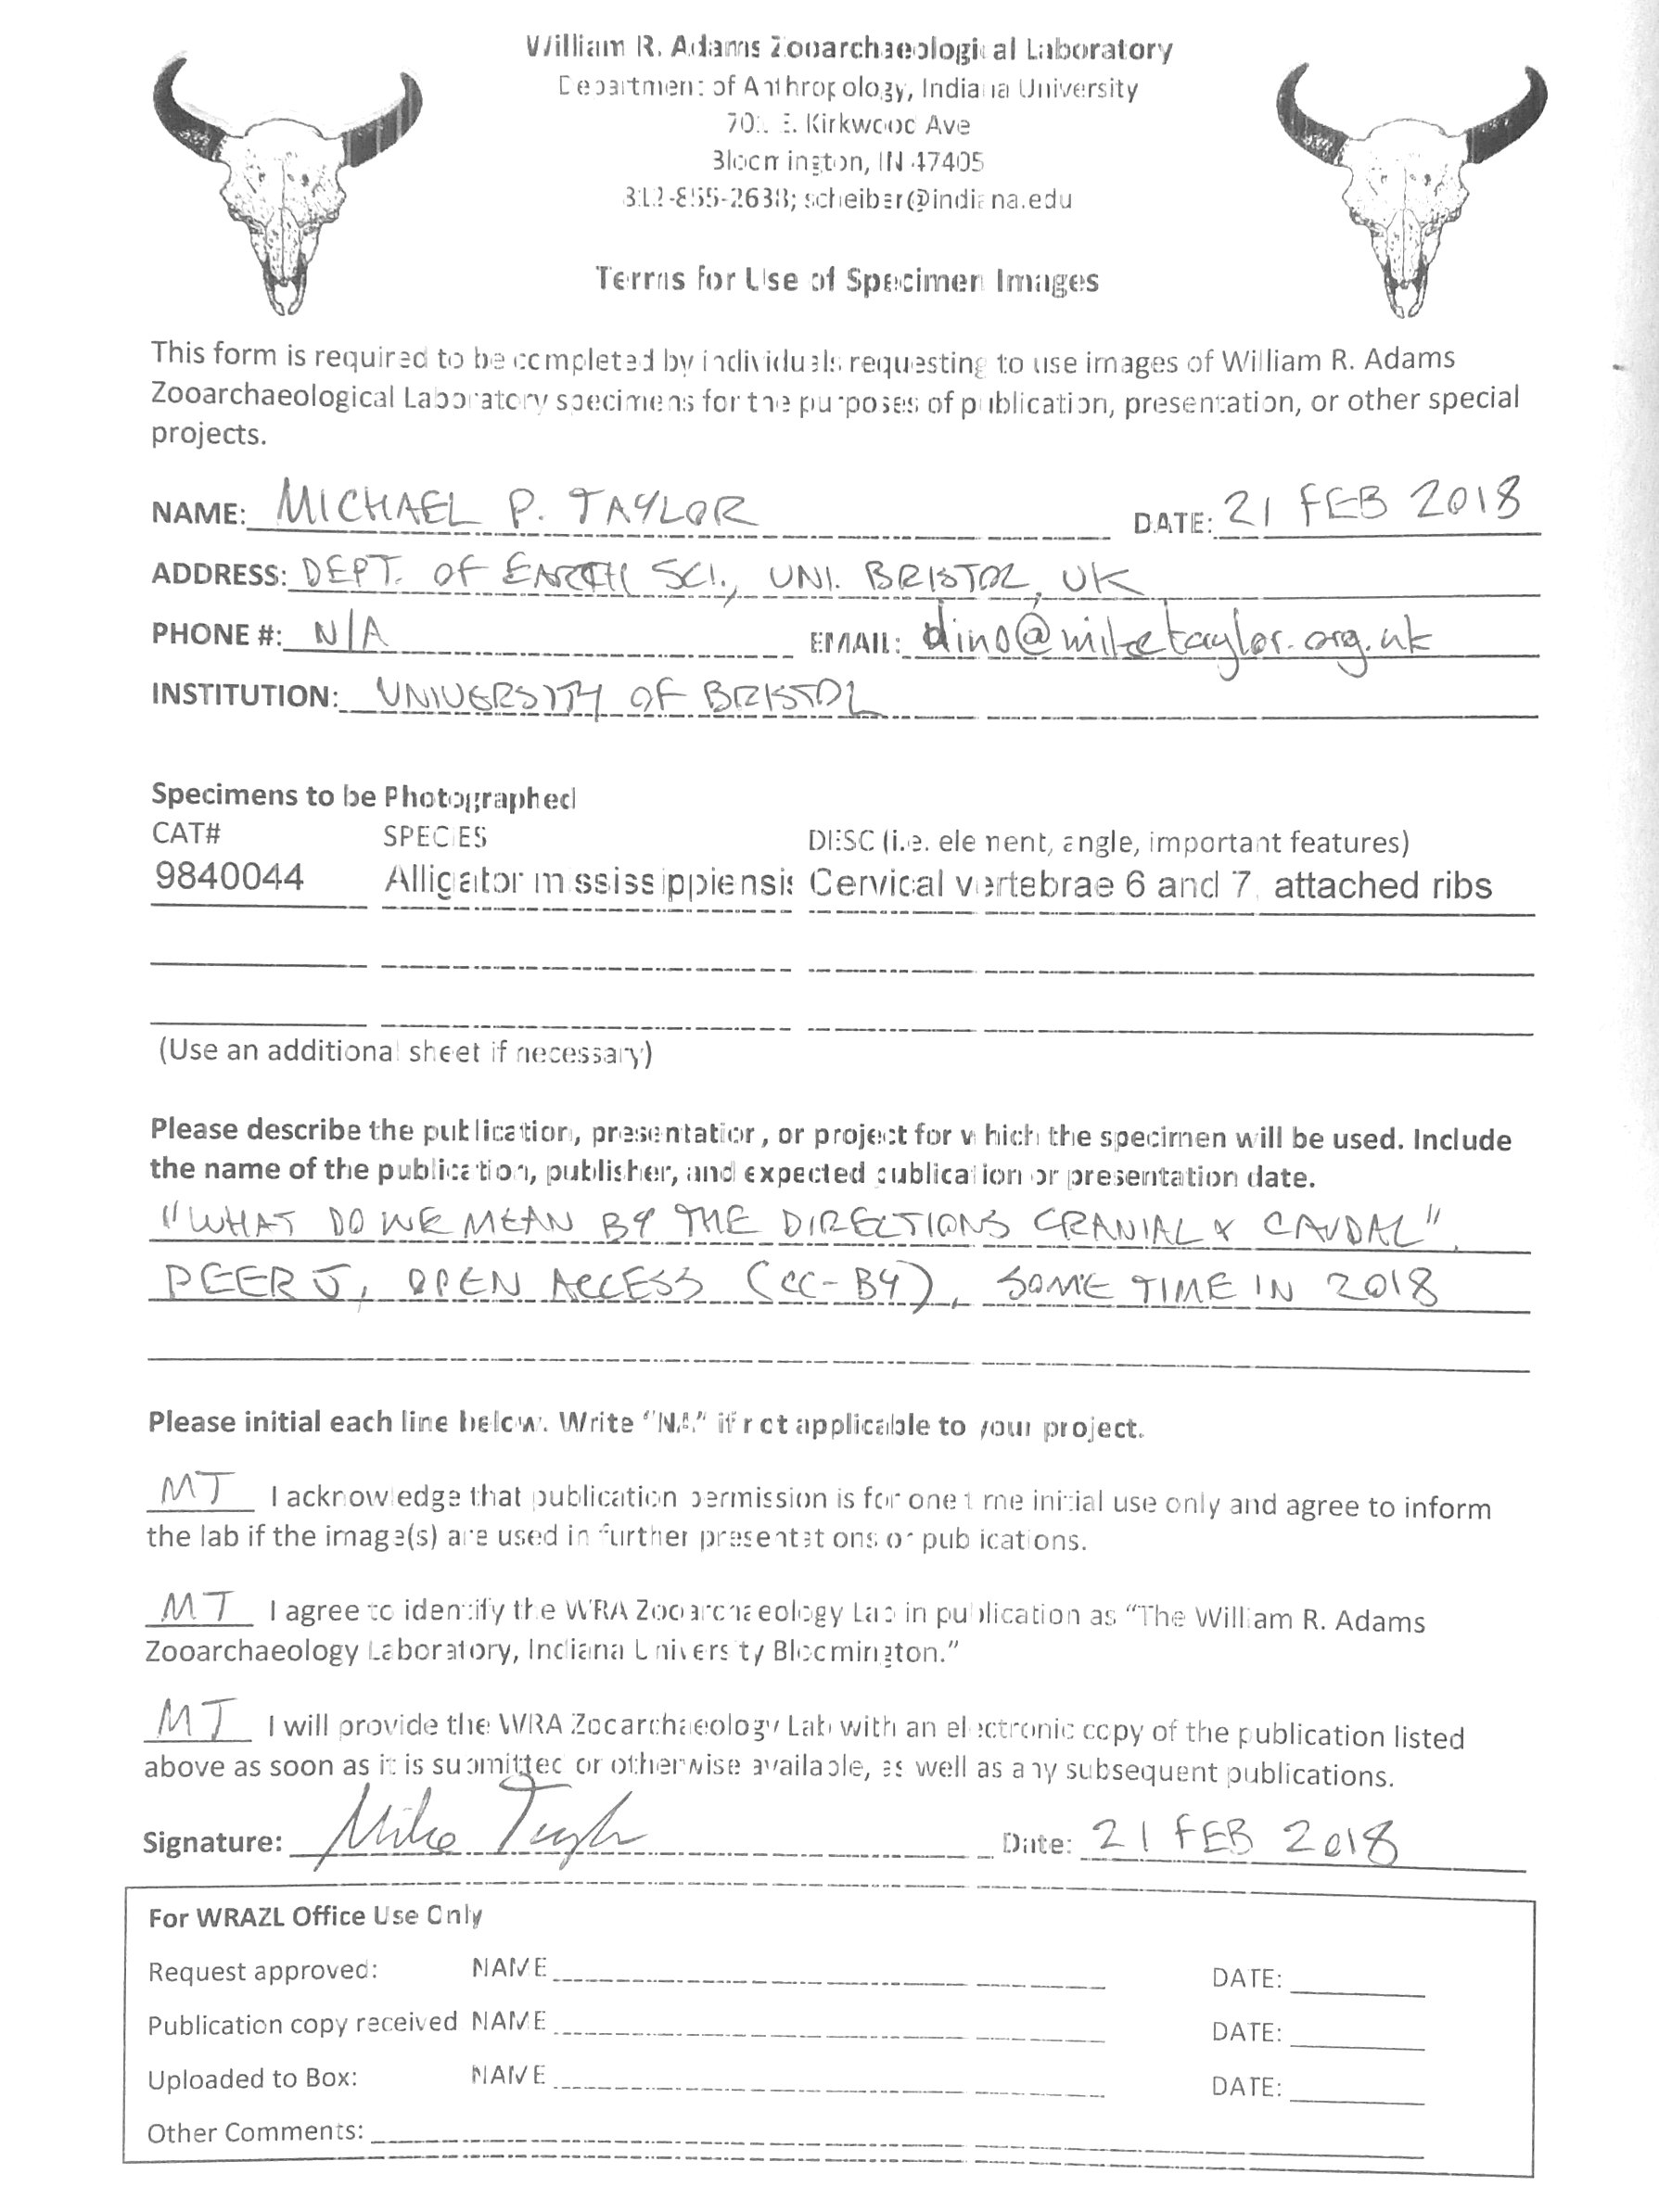 William R. Adams Zooarchaeological Laboratory
Department of Anthropology, Indiana University
E. Kirkwood Ave
Bloomington, IN 47405
812-855-2638; scheiber@indiana.edu
Terms for Use of Specimen Images
This form is required to be completed by individuals requesting to use images of William R. Adams
Zooarchaeological Laboratory specimens for the purposes of publication, presentation, or other special
projects.
NAME: MICHAEL P. TAYLOR DATE: 21 FEB 2018
ADDRESS: DEPT. OF EARTH SCI., UNI. BRISTOL, UK
PHONE #: N/A EMAIL: dino@miketaylor.org.uk
INSTITUTION: UNIVERSITY OF BRISTOL
Specimens to be Photographed
CAT# SPECIES DESC (i.e. element, angle, important features)
9840044 Alligator mississippiensis Cervical vertebrae 6 and 7, attached ribs
(Use an additional sheet if necessary)
Please describe the publication, presentation, or project for which the specimen will be used. Include
the name of the publication, publisher, and expected publication or presentation date.
"WHAT DO WE MEAN BY THE DIRECTIONS CRANIAL & CAUDAL".
PEERJ, OPEN ACCESS (CC-BY), SOME TIME IN 2018
Please initial each line below. Write "NA" if not applicable to your project.
MT I acknowledge that publication permission is for one time initial use only and agree to inform
the lab if the image(s) are used in further presentations or publications.
MT I agree to identify the WRA Zooarchaeology Lab in publication as "The William R. Adams
Zooarchaeology Laboratory, Indiana University Bloomington."
MT I will provide the WRA Zooarchaeology Lab with an electronic copy of the publication listed
above as soon as it is submitted or otherwise available, as well as any subsequent publications.
Signature: Mike Taylor Date: 21 FEB 2018
For WRAZL Office Use Only
Request approved: NAME DATE:
Publication copy received NAME DATE:
Uploaded to Box: NAME DATE:
Other Comments: